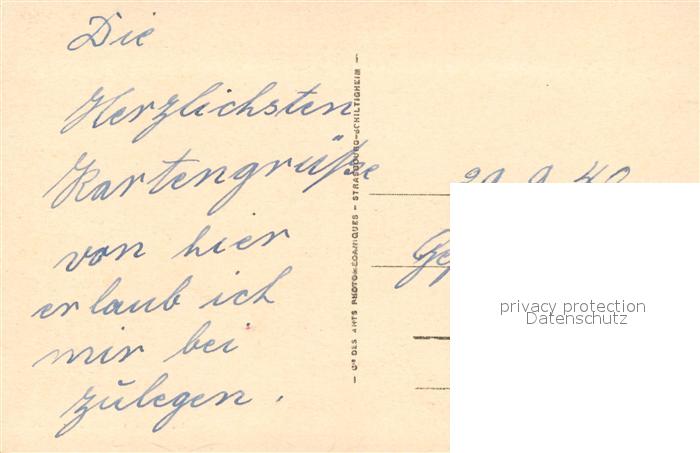 Die
Herzlichsten
Kartengrüße
von hier
erlaub ich
mir bei
zulegen.
– Cie DES ARTS PHOTOMÉCANIQUES – STRASBOURG-SCHILTIGHEIM –
29.9.40
privacy protection
Datenschutz